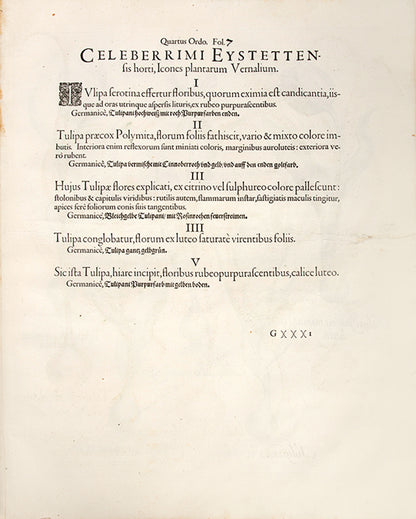 Quartus Ordo. Fol. 7
CELEBERRIMI EYSTETTEN-
sis horti, Icones plantarum Vernalium.
I
TVlipa serotina effertur floribus, quorum eximia est candicantia, iis-
que ad oras utrinque aspersis lituris, ex rubeo purpurascentibus.
Germanicè, Tulipan hochweiß mit roth Purpurfarben enden.
II
Tulipa præcox Polymita, florum foliis fathiscit, vario & mixto colore im-
butis. Interiora enim reflexorum sunt miniati coloris, marginibus auroluteis: exteriora ve-
rò rubent.
Germanicè, Tulipa vermischt mit Cinnoberroth und gelb/ und auff den enden goltfarb.
III
Hujus Tulipæ flores explicati, ex citrino vel sulphureo colore pallescunt:
stolonibus & capitulis viridibus: rutilis autem, flammarum instar, fastigiatis maculis tingitur,
apices ferè foliorum conis suis tangentibus.
Germanicè, Bleichgelbe Tulipani/ mit Rosinrothen fewerstreimen.
IIII
Tulipa conglobatur, florum ex luteo saturatè virentibus foliis.
Germanicè, Tulipa gantz gelbgrün.
V
Sic ista Tulipa, hiare incipit, floribus rubeopurpurascentibus, calice luteo.
Germanicè, Tulipani Purpurfarb mit gelben boden.
G X X X 1